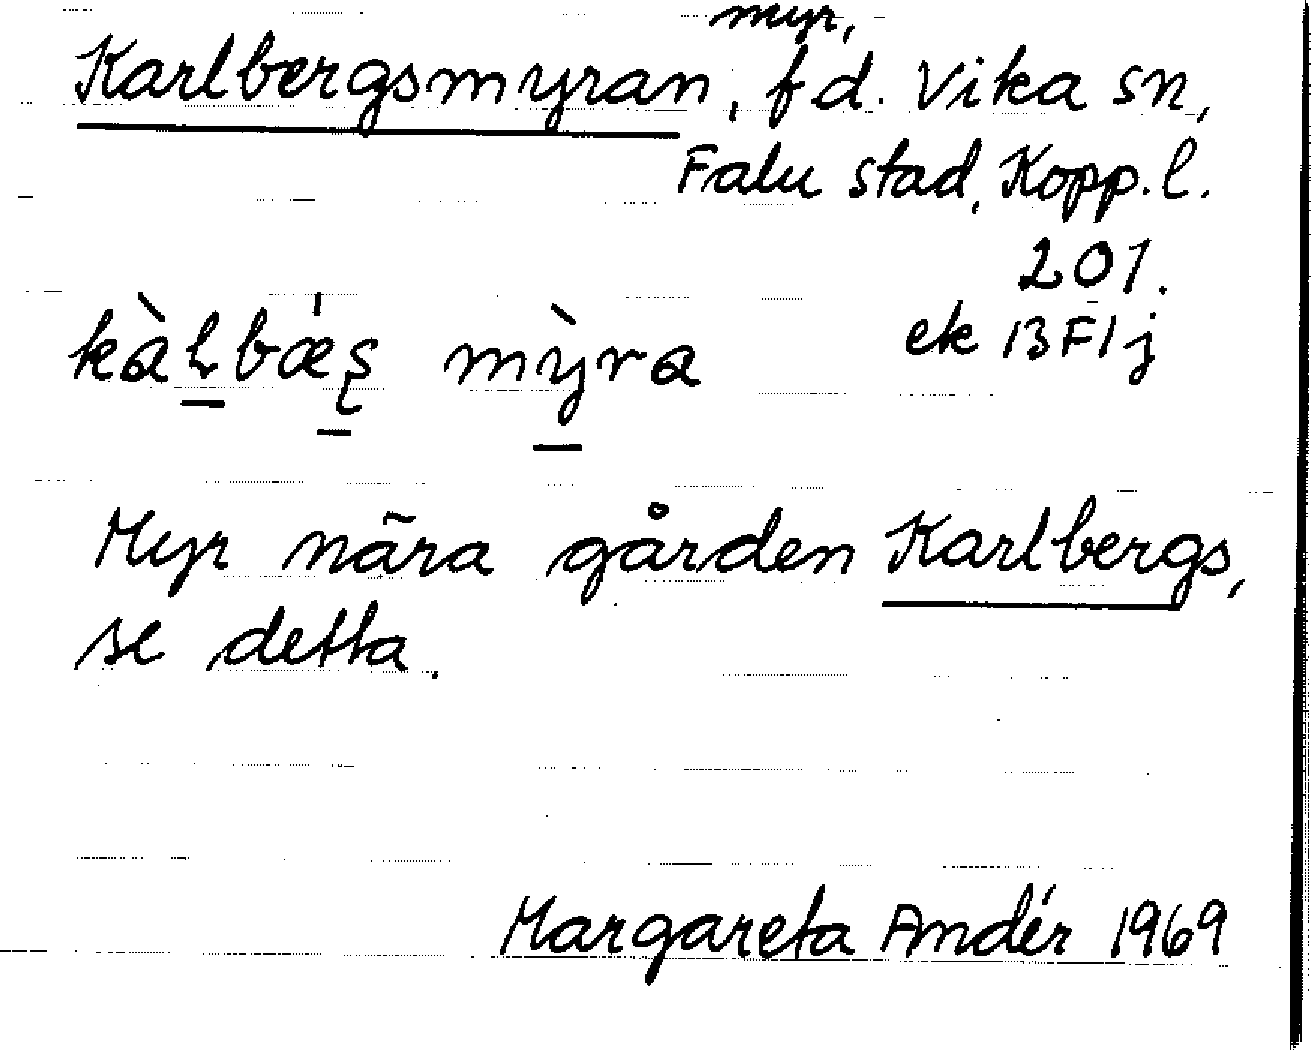 myr,
Karlbergsmyran, fd. Vika sn,
Falu stad, Kopp. l.
201.
ek 13F1j
kàɬbǽʂ mỳra
Myr nära gården Karlbergs,
se detta.
Margareta Andér 1969